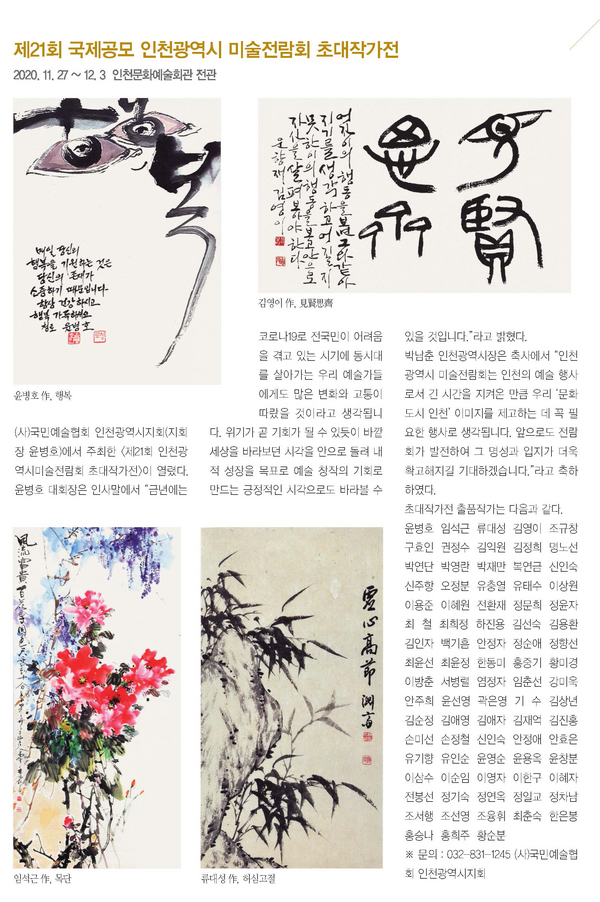 제21회 국제공모 인천광역시 미술전람회 초대작가전
2020. 11. 27 ~ 12. 3 인천문화예술회관 전관
매일 당신의
행복을 기원하는 것은
당신의 존재가
소중하기 때문입니다
항상 건강하시고
행복 가득하세요
윤병호
윤병호 作, 행복
見賢
思齊
어진이의 행동을 봄 그와 같아
지기를 생각하고 어질지
못한 이의 행동을 보고 안으로
자신을 살펴보아야 한다
김영이
김영이 作, 見賢思齊
(사)국민예술협회 인천광역시지회(지회
장 윤병호)에서 주최한 〈제21회 인천광
역시미술전람회 초대작가전〉이 열렸다.
윤병호 대회장은 인사말에서 “금년에는
코로나19로 전국민이 어려움
을 겪고 있는 시기에 동시대
를 살아가는 우리 예술가들
에게도 많은 변화와 고통이
따랐을 것이라고 생각됩니
다. 위기가 곧 기회가 될 수 있듯이 바깥
세상을 바라보던 시각을 안으로 돌려 내
적 성장을 목표로 예술 창작의 기회로
만드는 긍정적인 시각으로도 바라볼 수
있을 것입니다.”라고 밝혔다.
박남춘 인천광역시장은 축사에서 “인천
광역시 미술전람회는 인천의 예술 행사
로서 긴 시간을 지켜온 만큼 우리 ‘문화
도시 인천’ 이미지를 제고하는 데 꼭 필
요한 행사로 생각됩니다. 앞으로도 전람
회가 발전하여 그 명성과 입지가 더욱
확고해지길 기대하겠습니다.”라고 축하
하였다.
초대작가전 출품작가는 다음과 같다.
윤병호 임석근 류대성 김영이 조규창
구효인 권정수 김익원 김정희 명노선
박연단 박영란 박재만 복연금 신인숙
신주항 오정분 유충열 유태수 이상원
이용준 이혜원 전환재 정문희 정윤자
최 철 최희정 하진용 김선숙 김용환
김인자 백기흠 안정자 정순애 정향선
최윤선 최윤정 한동미 홍중기 황미경
이방춘 서병렬 염정자 임춘선 강미옥
안주희 윤선영 곽은영 기 수 김상년
김순정 김애영 김애자 김재억 김진홍
손미선 손정철 신인숙 안정애 안효은
유기향 유인순 윤영순 윤용옥 윤창분
이상수 이순임 이영자 이한구 이혜자
전봉선 정기숙 정연옥 정일교 정차남
조서행 조선영 조용휘 최춘숙 한은붕
홍승나 홍희주 황순분
※ 문의 : 032-831-1245 (사)국민예술협
회 인천광역시지회
風流富貴
임석근 作, 목단
虛心高節
류대성 作, 허심고절